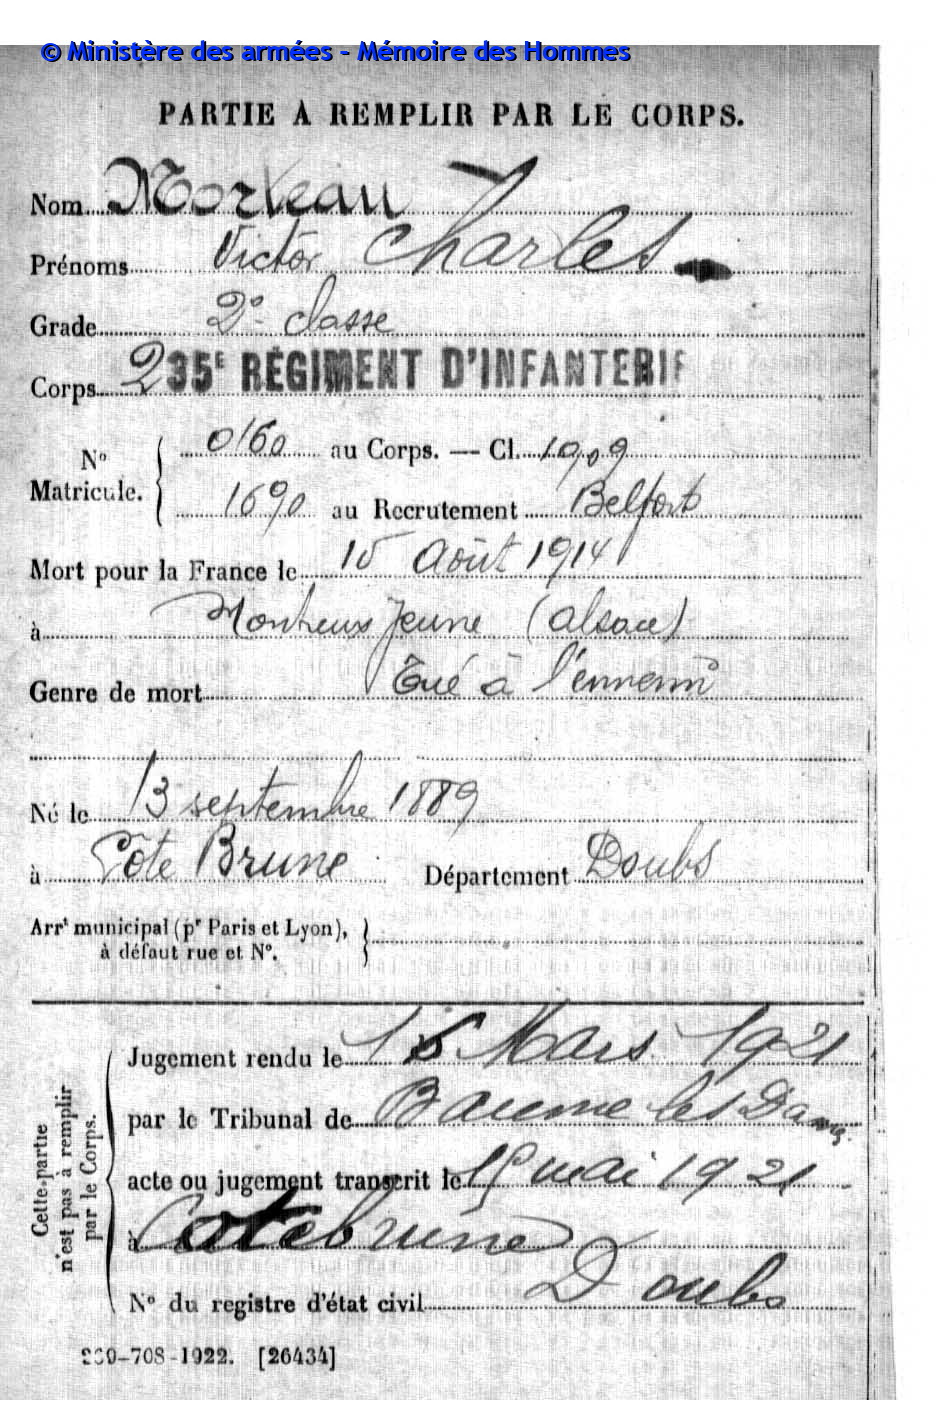 © Ministère des armées - Mémoire des Hommes
PARTIE À REMPLIR PAR LE CORPS.
Nom Morteau Charles
Prénoms Victor
Grade 2e classe
Corps 235E RÉGIMENT D'INFANTERIE
N° Matricule. 0160 au Corps. — Cl. 1909
1690 au Recrutement Belfort
Mort pour la France le 15 Août 1914
à Montreux Jeune (Alsace)
Genre de mort Tué à l'ennemi
Né le 13 septembre 1889
à Côte Brune Département Doubs
Arrt municipal (pr Paris et Lyon),
à défaut rue et N°.
Cette partie
n'est pas à remplir
par le Corps.
Jugement rendu le Mars 1921
par le Tribunal de Baume les Dames
acte ou jugement transcrit le mai 1921
à Cotebrune
Doubs
N° du registre d'état civil
-708-1922. [26434]